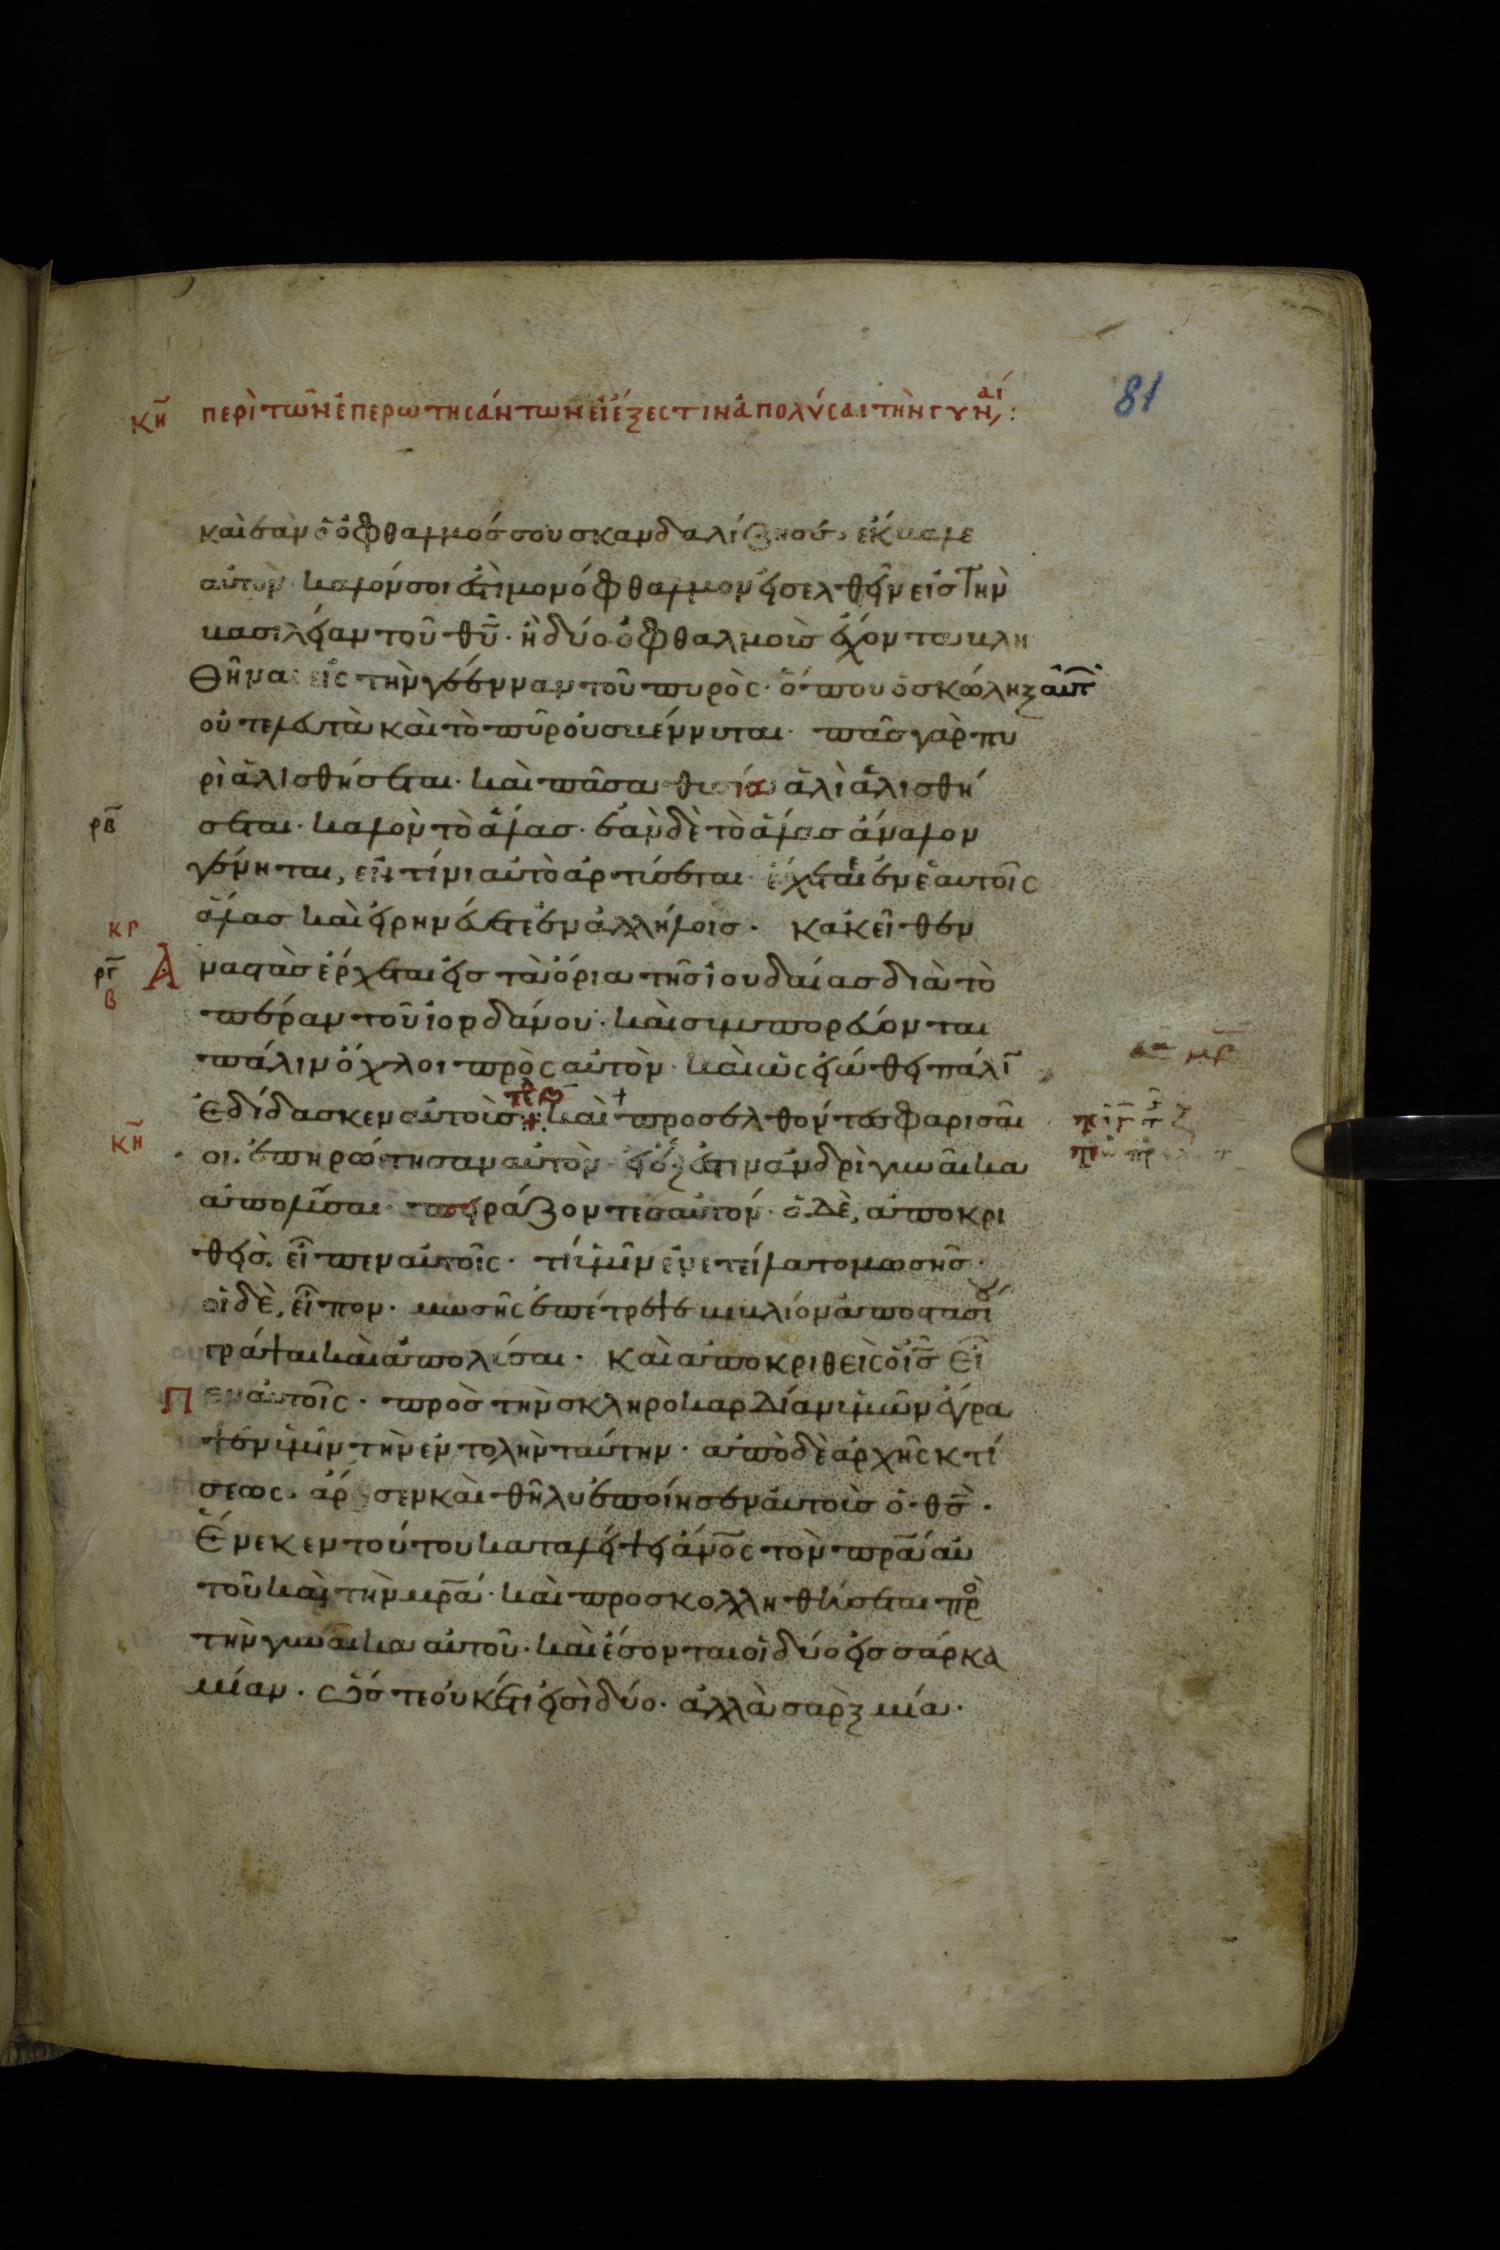 81
κη̅ περὶ τῶν ἐπερωτησάντων εἰ ἔξεστιν ἀπολύσαι τὴν γυναί :
καὶ ἐὰν ὁ ὀφθαλμός σου σκανδαλίζη σε, ἔκβαλε
αὐτὸν· καλόν σοι ἐστὶ μονόφθαλμον εἰσελθεῖν εἰς τὴν
βασιλείαν τοῦ θ̅υ̅· ἢ δύο ὀφθαλμοὺς ἔχοντα βλη
θῆναι εἰς τὴν γέενναν τοῦ πυρὸς· ὅπου ὁ σκώληξ αὐτ
οὐ τελευτὰ καὶ τὸ πῦρ οὐ σβέννυται· πᾶς γὰρ πυ
ρὶ ἁλισθήσεται· καὶ πᾶσα θυσία ἁλὶ ἁλισθή
ρβ̅ σεται· καλὸν τὸ ἅλας· ἐὰν δὲ τὸ ἅλας ἄναλον
γένηται, ἐν τίνι αὐτὸ ἀρτύσεται· ἔχεται ἐν ἑαυτοῖς
ἅλας καὶ εἰρηνεύετε ἐν ἀλλήλοις· κακεῖθεν
κρ
ργ̅ β Ἀ ναστὰς ἔρχεται εἰς τὰ ὅρια τῆς ἰουδαίας διὰ τὸ
πέραν τοῦ ἰορδάνου· καὶ συμπορεύονται
πάλιν ὄχλοι πρὸς αὐτὸν· καὶ ὡς εἰώθει πάλι̅
κη̅ Ἐδίδασκεν αὐτοὺς· καὶ προσελθόντες φαρισαῖ
οι. ἐπηρώτησαν αὐτὸν· εἰ ἔξεστιν ἀνδρὶ γυναῖκα
ἀπολῦσαι· πειράζοντες αὐτόν· ὁ δὲ, ἀποκρι
θεὶς. εἶπεν αὐτοῖς· τί ὑμῖν ἐνετείλατο μωσῆς·
οἱ δὲ, εἶπον· μωσῆς ἐπέτρεψε βιβλίον ἀποστασίου
γράψαι καὶ ἀπολύσαι· Καὶ ἀποκριθεὶς ὁ ι̅ς̅ εἶ
Π εν αὐτοῖς· πρὸς τὴν σκληροκαρδίαν ὑμῶν ἔγρα
ψεν ὑμῖν τὴν ἐντολὴν ταύτην· ἀπὸ δὲ ἀρχῆς κτί
σεως· ἄρσεν καὶ θῆλυ ἐποίησεν αὐτοὺς ὁ θ̅ς̅·
Ἕνεκεν τούτου καταλείψει ἄν̅ο̅ς τὸν π̅ρ̅α̅ αὐ
τοῦ καὶ τὴν μ̅ρ̅α̅· καὶ προσκολληθήσεται πρὸ
τὴν γυναῖκα αὐτοῦ· καὶ ἔσονται οἱ δύο εἰς σάρκα
μίαν· Ὥστε οὐκέτι εἰσὶ δύο· ἀλλὰ σὰρξ μία·